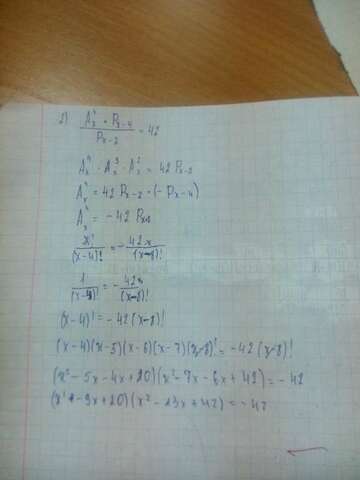 2) A⁴ₓ · Pₓ₋₄ / Pₓ₋₂ = 42
A⁴ₓ · A³ₓ · A²ₓ = 42 Pₓ₋₂
A⁴ₓ = 42 Pₓ₋₂ · (- Pₓ₋₄)
A⁴ₓ = -42
x! / (x-4)! = - 42x / (x-8)!
1 / (x-4)! = - / (x-8)!
(x-4)! = -42 (x-8)!
(x-4)(x-5)(x-6)(x-7)(x-8)! = -42 (x-8)!
(x² - 5x - 4x + 20)(x² - 7x - 6x + 42) = -42
(x² - 9x + 20)(x² - 13x + 42) = -42